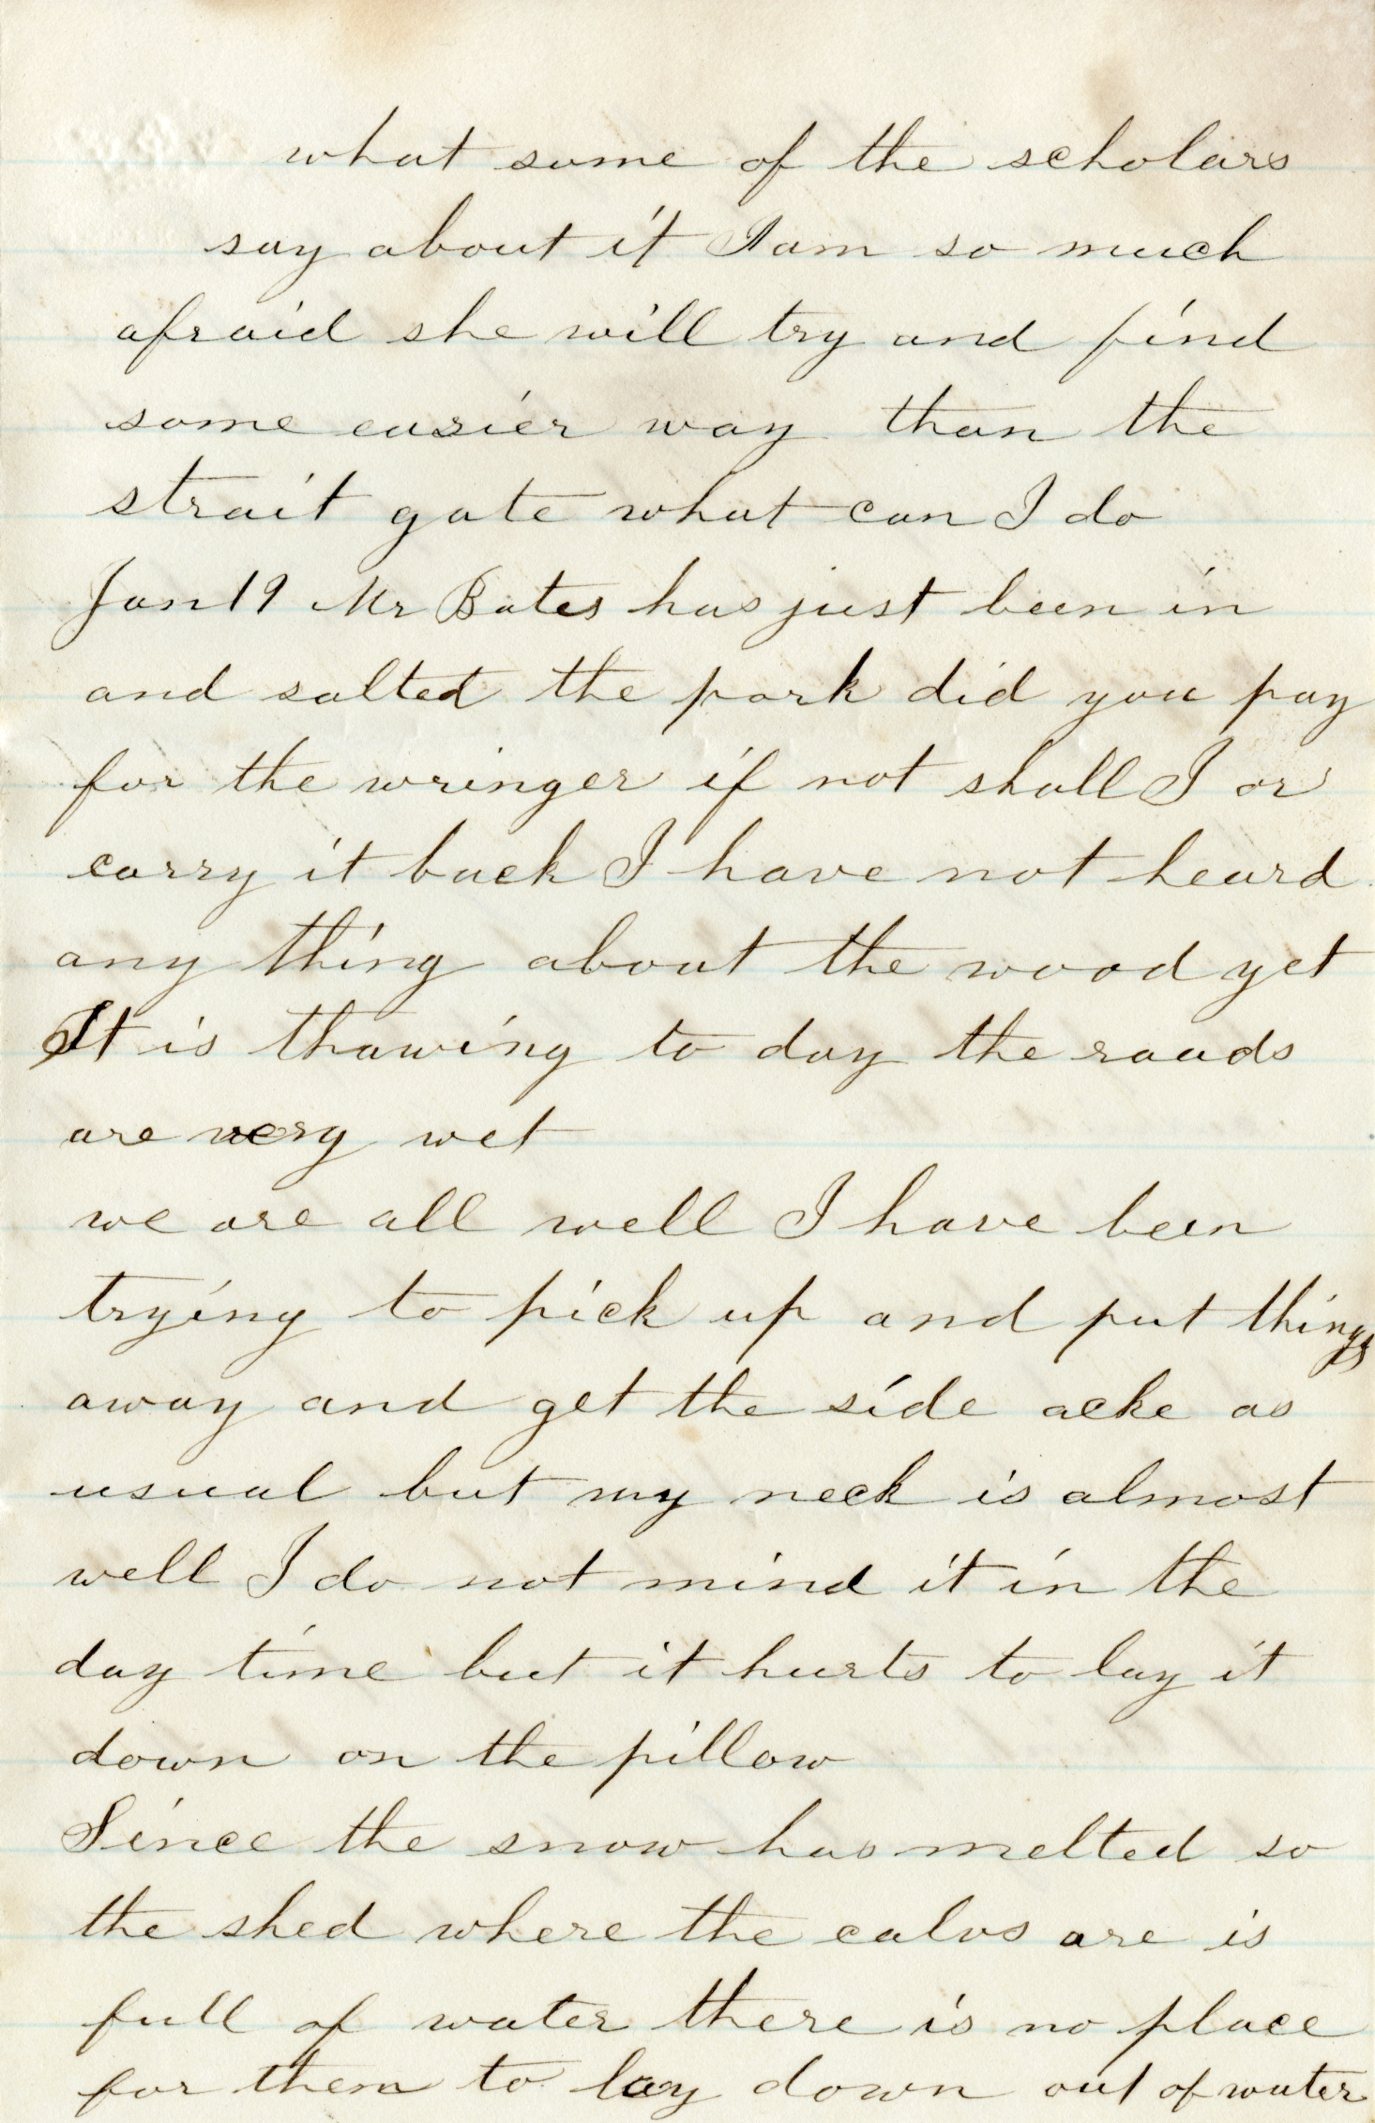 what some of the scholars
say about it I am so much
afraid she will try and find
some easier way than the
strait gate what can I do
Jan 19 Mr Bates has just been in
and salted the pork did you pay
for the wringer if not shall I or
carry it back I have not heard
any thing about the wood yet
It is thawing to day the roads
are very wet
we are all well I have been
trying to pick up and put things
away and get the side acke as
usual but my neck is almost
well I do not mind it in the
day time but it hurts to lay it
down on the pillow
Since the snow has melted so
the shed where the calvs are is
full of water there is no place
for them to lay down out of water